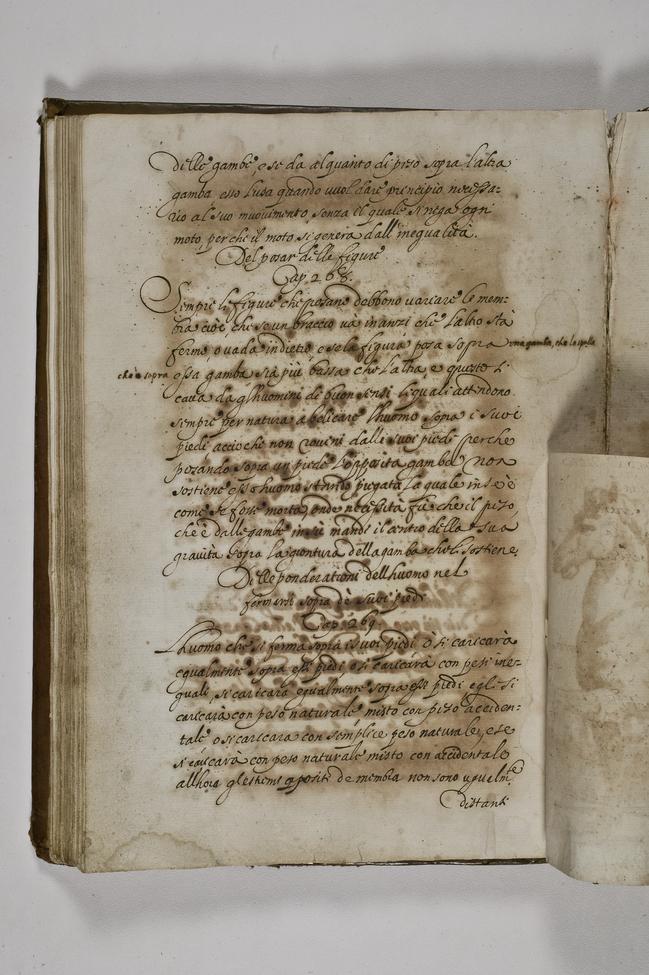 delle gambe, e se da alquanto di peso sopra l'altra
gamba esso l'usa quando vuol dare principio necessa-
rio al suo muovimento, senza il quale si nega ogni
moto, perche il moto si genera dall'inegualità.
Del posar delle figure
Cap. 268.
Sempre le figure che posano debbono variare le mem-
bra cioè, che se un braccio và inanzi che l'altro stà
fermo o vada indietro, e se la figura posa sopra una gamba, che la spalla
che è sopra essa gamba sia più bassa che l'altra e questo si
cava da gl'huomini di buon sensi li quali attendono
sempre per natura a belicare l'huomo sopra i suoi
piedi acciò che non rovini dalli suoi piedi perche
posando sopra un piede l'opposita gamba non
sostiene esso huomo stando piegata la quale in se è
come se fosse morta, onde necessità fà che il peso,
che è dalle gambe in sù mandi il centro della sua
gravità sopra la giontura della gamba che lo sostiene.
Delle ponderationi dell'huomo nel
fermarsi sopra de suoi piedi
Cap. 269.
L'huomo che si ferma sopra i suoi piedi o si caricarà
equalmente sopra essi piedi o si caricarà con pesi ine-
quali, si caricarà equalmente sopra essi piedi egli si
caricarà con peso naturale misto con peso acciden-
tale o si caricara con semplice peso naturale, e se
si caricarà con peso naturale misto con accidentale
allhora gl'estremi oppositi de membra non sono ugualmte
distanti